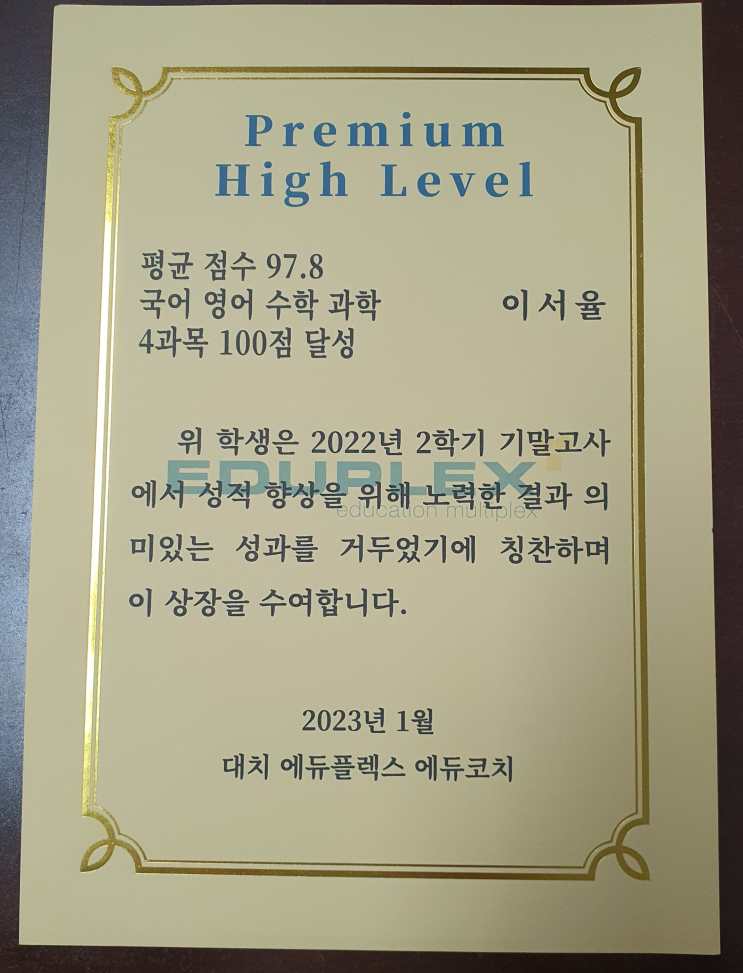 Premium
High Level
평균 점수 97.8
국어 영어 수학 과학 이서율
4과목 100점 달성
위 학생은 2022년 2학기 기말고사
EDUPLEX+
에서 성적 향상을 위해 노력한 결과 의
education multiplex
미있는 성과를 거두었기에 칭찬하며
이 상장을 수여합니다.
2023년 1월
대치 에듀플렉스 에듀코치